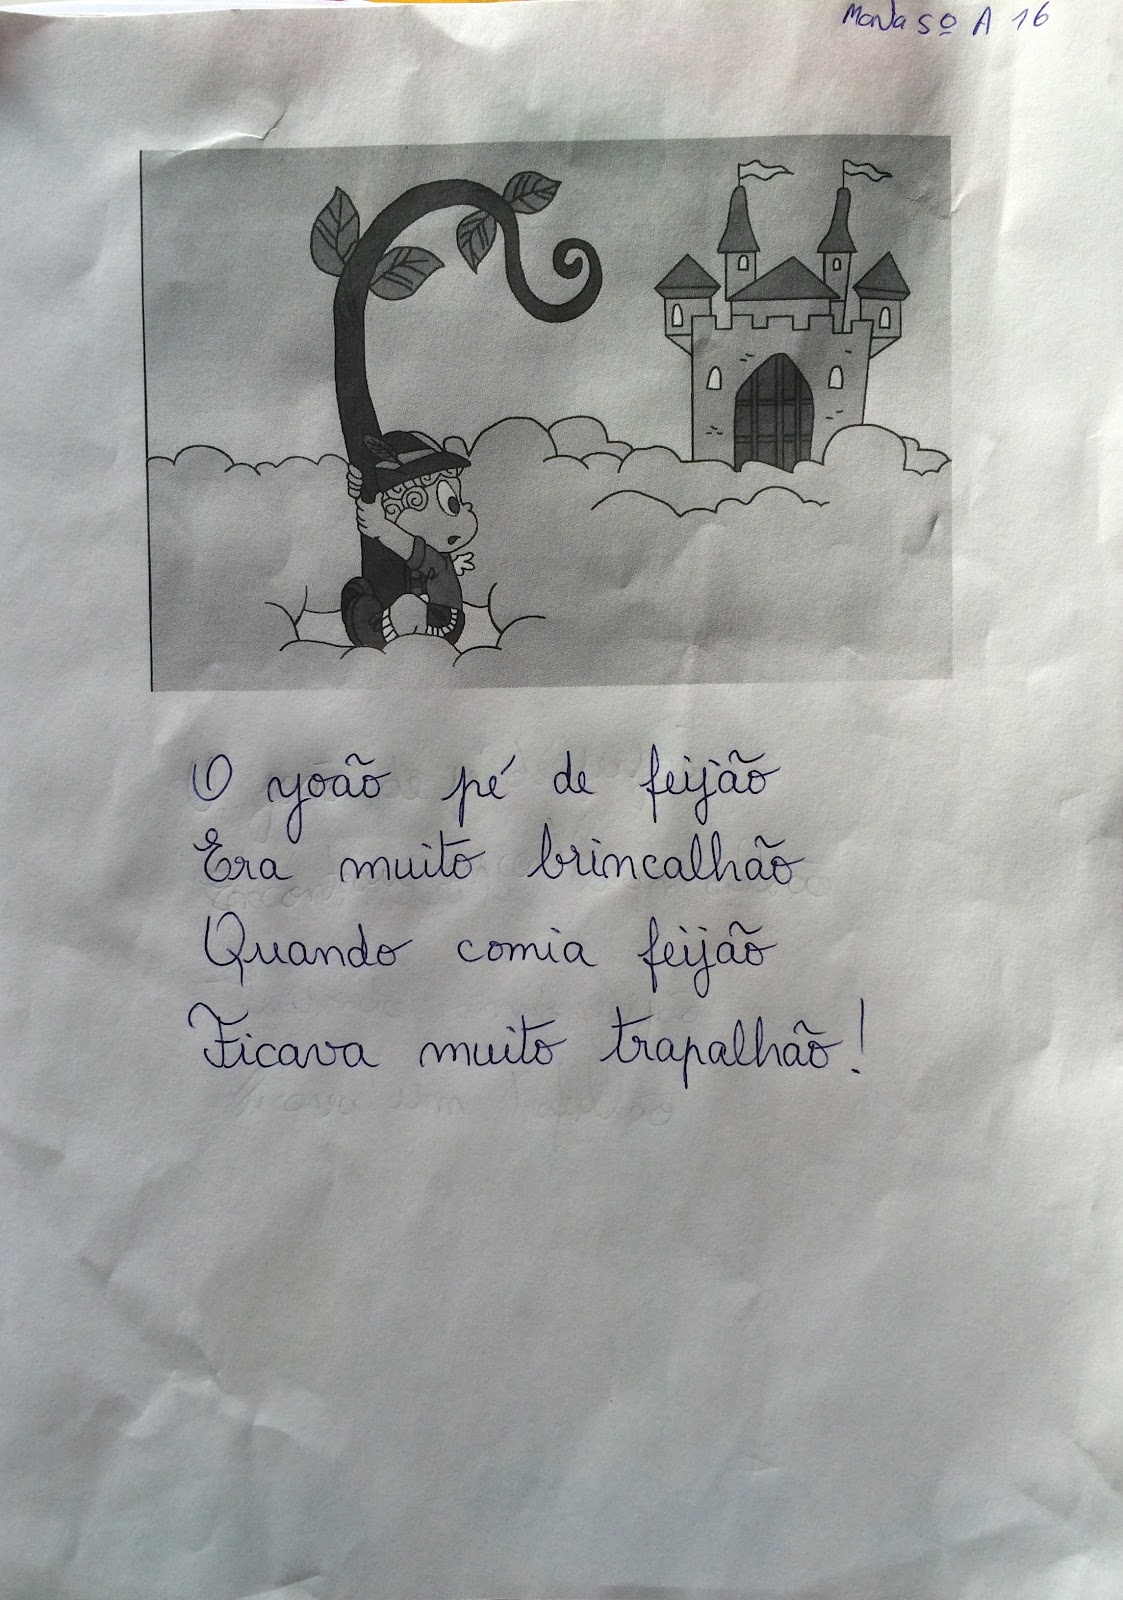 Mona 5º A 16
O João pé de feijão
Era muito brincalhão
Quando comia feijão
Ficava muito trapalhão!